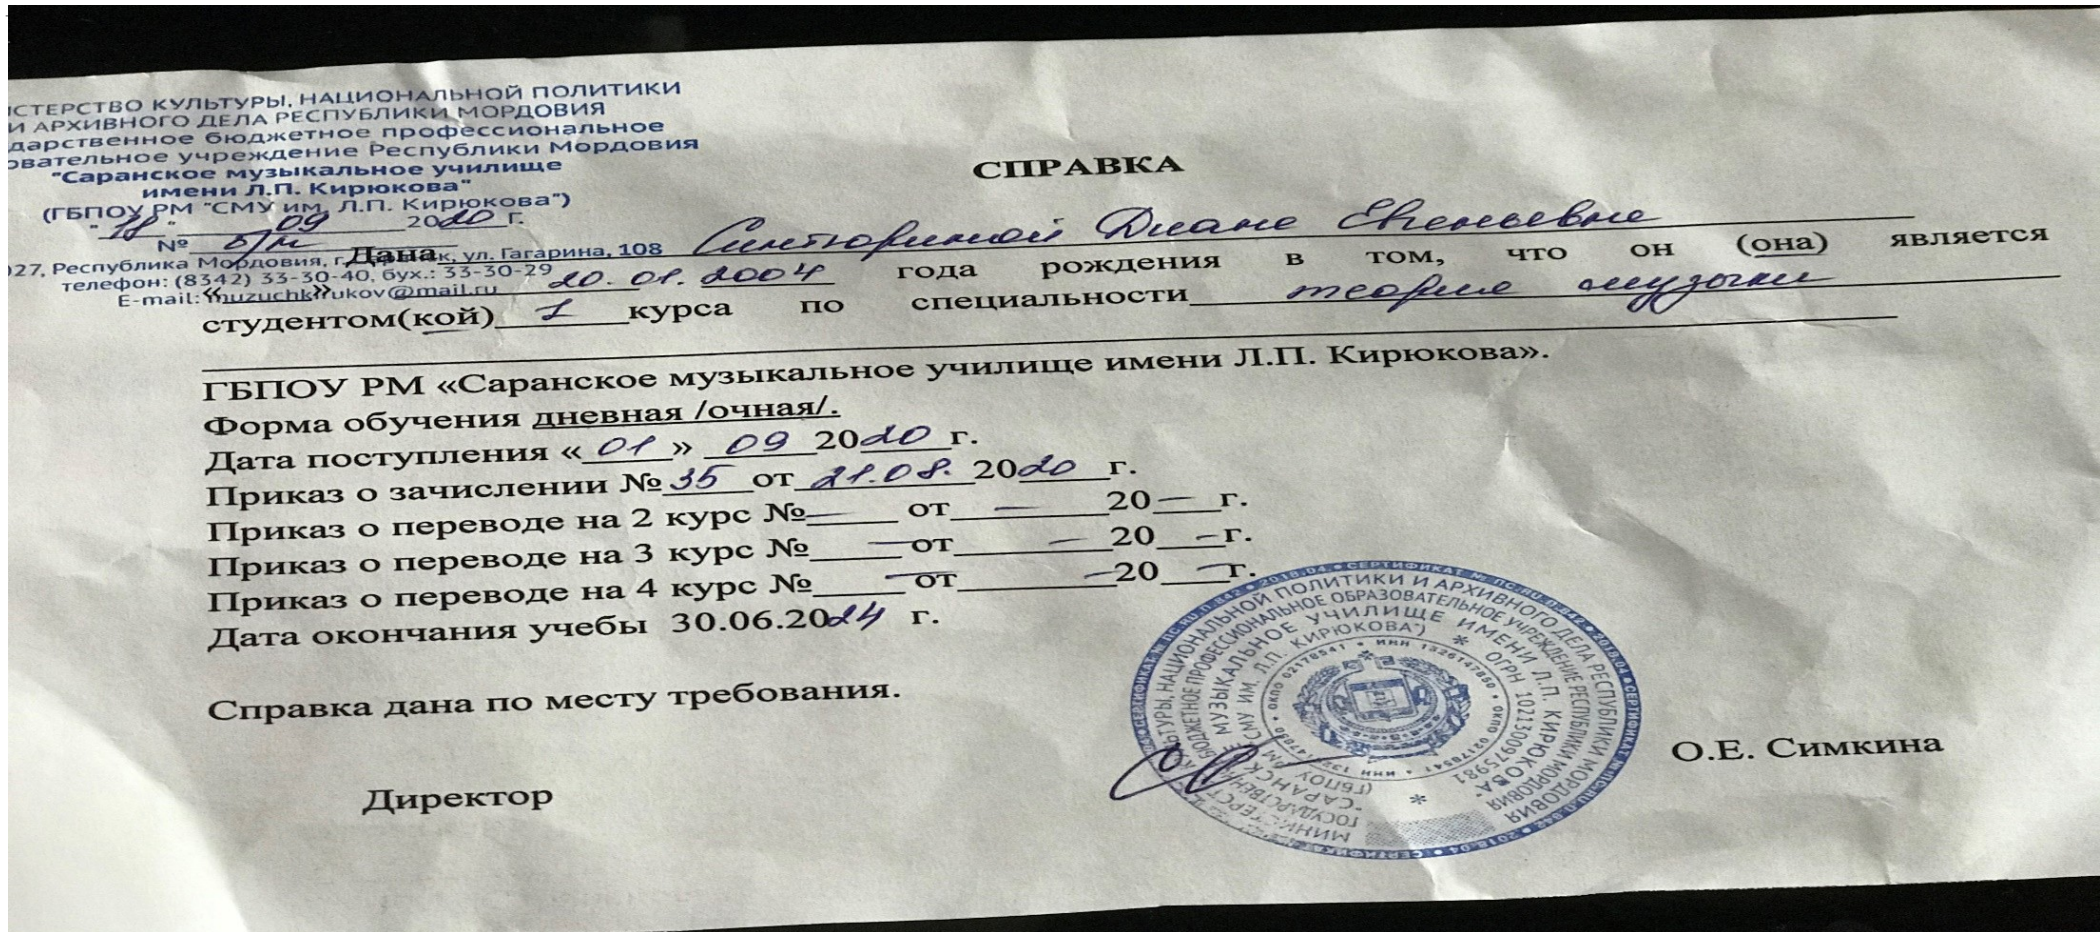 СТЕРСТВО КУЛЬТУРЫ, НАЦИОНАЛЬНОЙ ПОЛИТИКИ
И АРХИВНОГО ДЕЛА РЕСПУБЛИКИ МОРДОВИЯ
дарственное бюджетное профессиональное
овательное учреждение Республики Мордовия
"Саранское музыкальное училище
имени Л.П. Кирюкова"
(ГБПОУ РМ "СМУ им. Л.П. Кирюкова")
"18" 09 2020 г.
№ б/н
027, Республика Мордовия, г. ул. Гагарина, 108
телефон: (8342) 33-30-40, бух.: 33-30-29
E-mail: muzuchkirukov@mail.ru
СПРАВКА
Дана Диане Евгеньевне
« » 20.01.2004 года рождения в том, что он (она) является
студентом(кой) 1 курса по специальности теория музыки
ГБПОУ РМ «Саранское музыкальное училище имени Л.П. Кирюкова».
Форма обучения дневная /очная/.
Дата поступления «01» 09 2020 г.
Приказ о зачислении № 35 от 21.08. 2020 г.
Приказ о переводе на 2 курс № — от — 20 — г.
Приказ о переводе на 3 курс № — от — 20 — г.
Приказ о переводе на 4 курс № — от — 20 — г.
Дата окончания учебы 30.06.2024 г.
Справка дана по месту требования.
Директор
О.Е. Симкина
МИНИСТЕРСТ КУЛЬТУРЫ, НАЦИОНАЛЬНОЙ ПОЛИТИКИ И АРХИВНОГО ДЕЛА РЕСПУБЛИКИ МОРДОВИЯ
ГОСУДАРСТВЕН БЮДЖЕТНОЕ ПРОФЕССИОНАЛЬНОЕ ОБРАЗОВАТЕЛЬНОЕ УЧРЕЖДЕНИЕ РЕСПУБЛИКИ МОРДОВИЯ
"САРАНСК МУЗЫКАЛЬНОЕ УЧИЛИЩЕ ИМЕНИ Л.П. КИРЮКОВА"
(ГБПОУ РМ "СМУ ИМ. Л.П. КИРЮКОВА") * ОГРН 1021300975981 *
ИНН 1326147850 • ОКПО 02178541